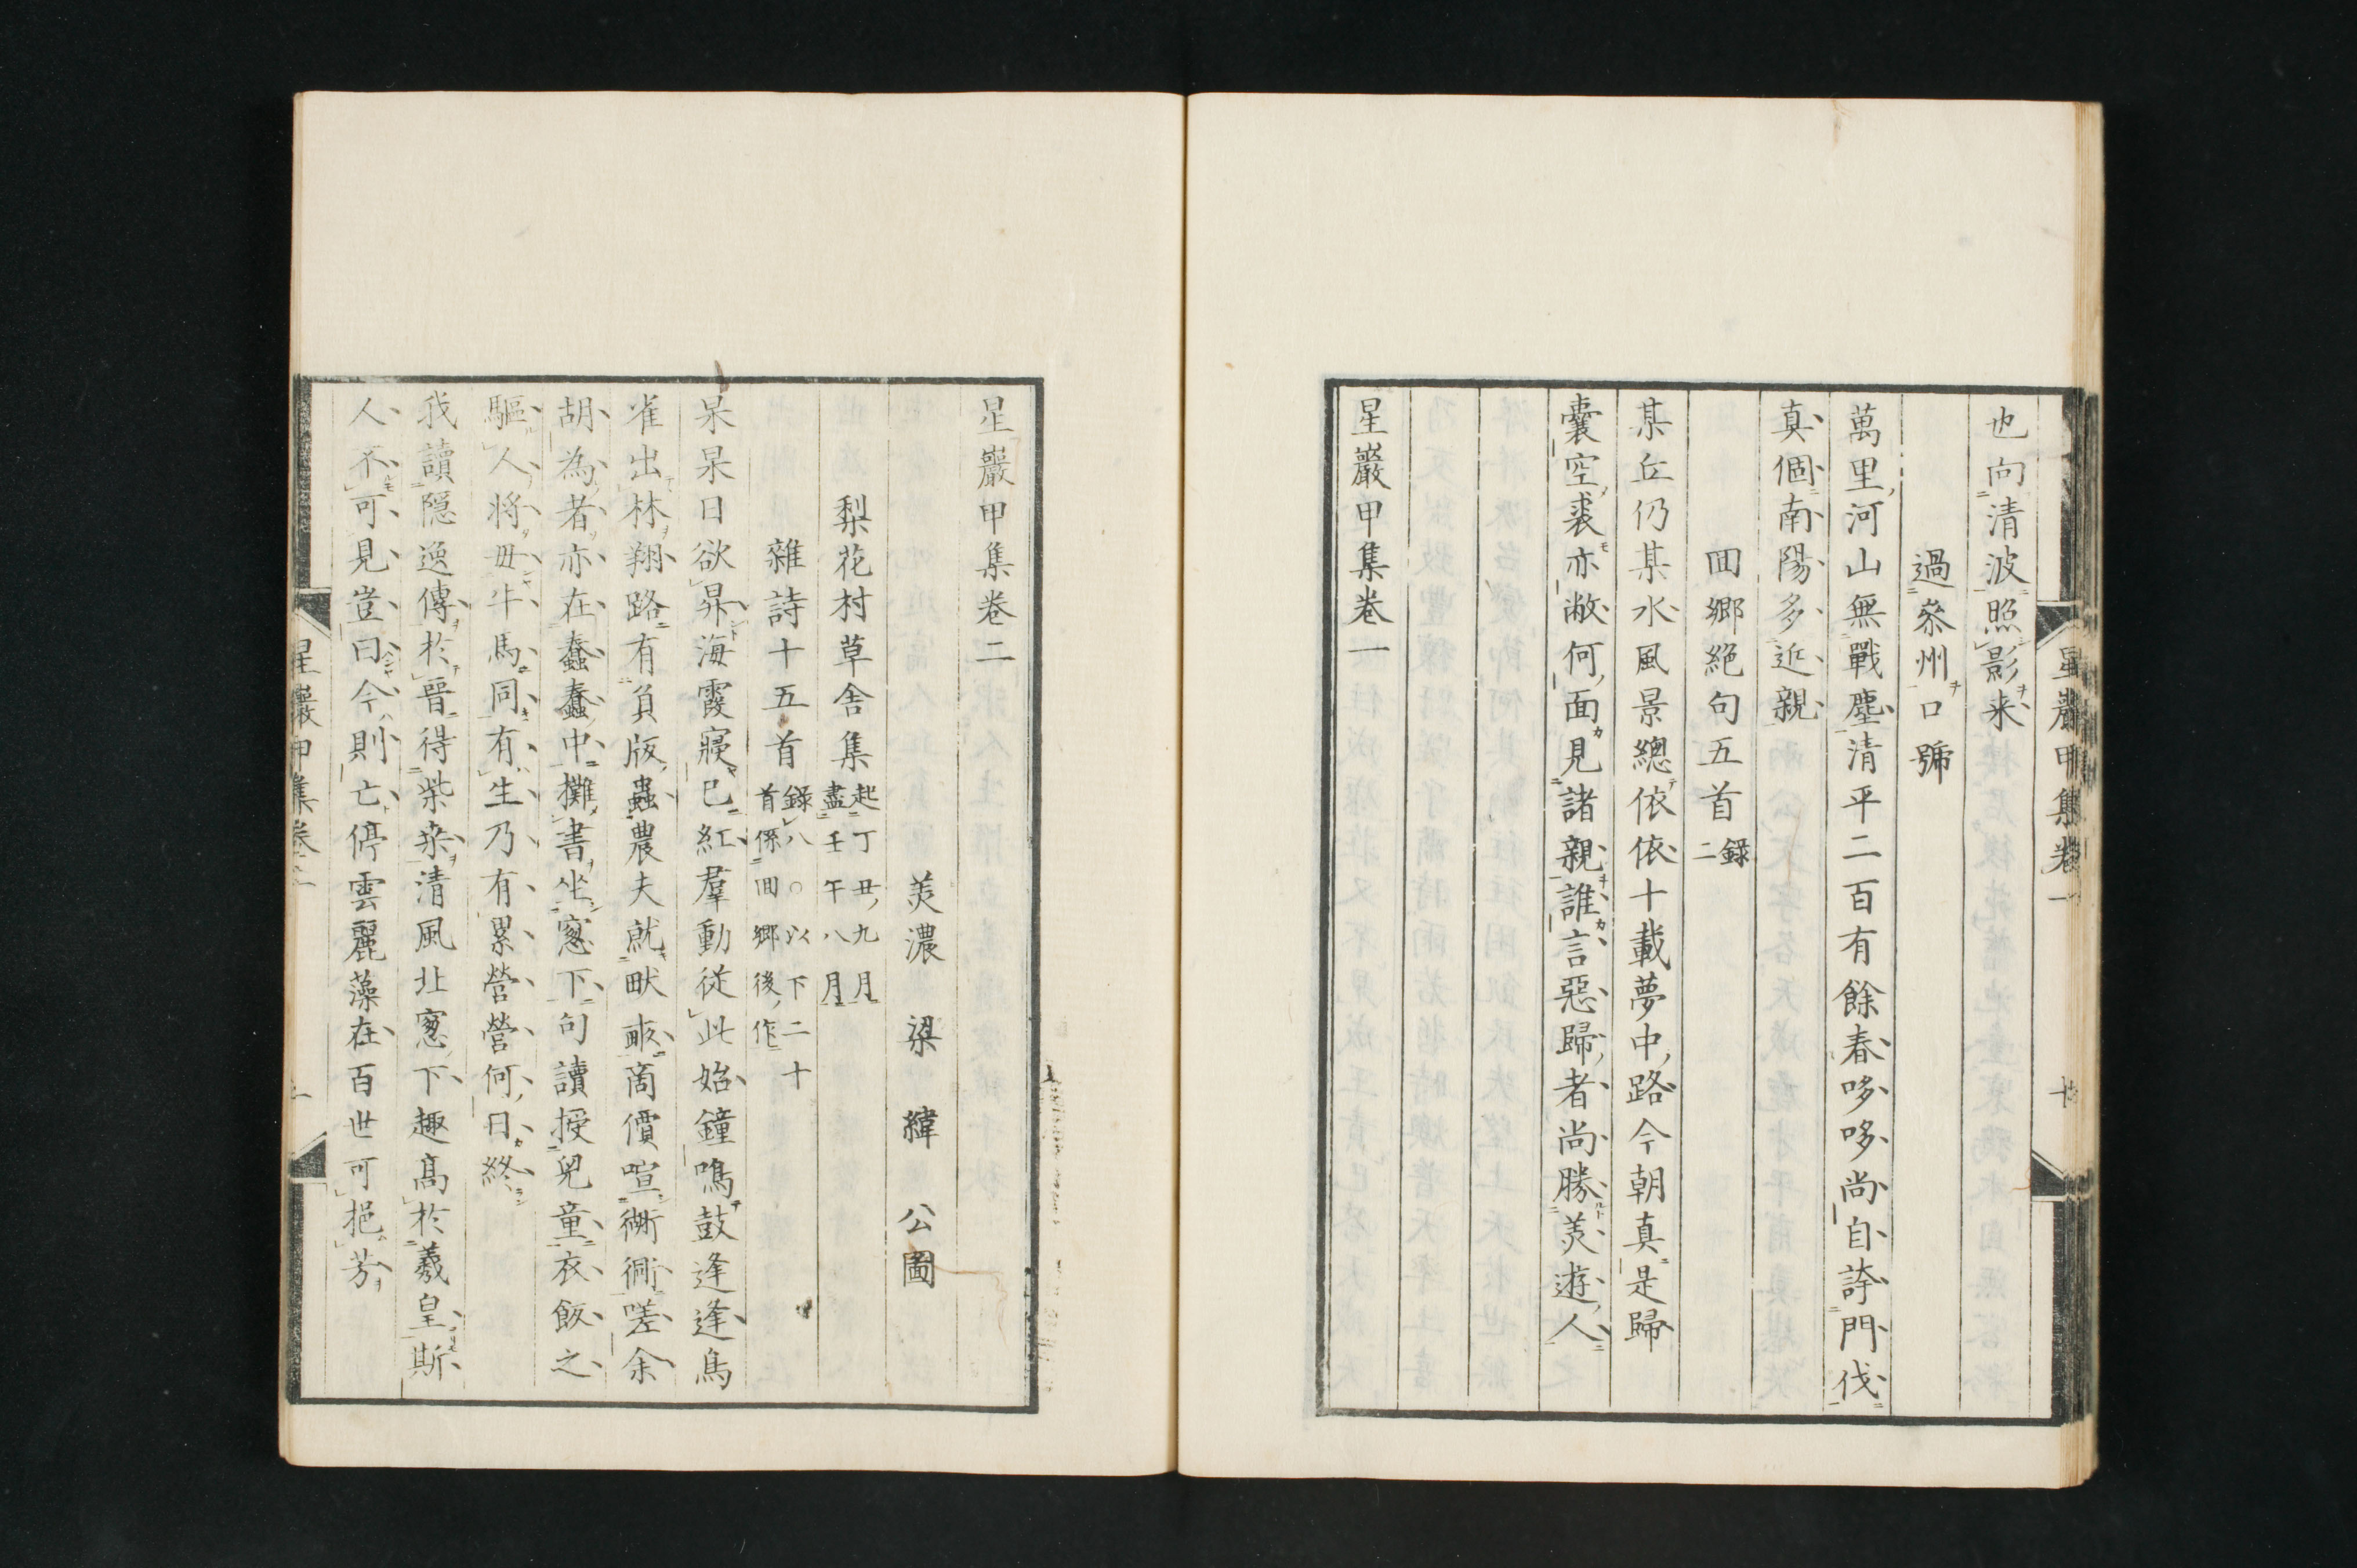 星巖甲集卷一
十
也向清波照影来
過叅州口號
萬里河山無戰塵清平二百有餘春哆哆尚自誇門伐
真個南陽多近親
回鄉絶句五首録二
某丘仍某水風景總依依十載夢中路今朝真是歸
囊空裘亦敝何面見諸親誰言惡歸者尚勝羨遊人
星巖甲集卷一
星巖甲集卷二
美濃 梁 緯 公圖
梨花村草舍集起丁丑九月盡壬午八月
雜詩十五首録八○以下二十首係回鄉後作
杲杲日欲昇海霞寢已紅羣動従此始鐘鳴鼓逢逢鳥
雀出林翔路有負版蟲農夫就畎畝商價喧衚衕嗟余
胡為者亦在蠢蠢中攤書坐窓下句讀授兒童衣飯之
驅人將毋牛馬同有生乃有累營營何日終
我讀隱逸傳於晉得柴桑清風北窓下趣高於羲皇斯
人不可見豈曰今則亡停雲麗藻在百世可挹芳
星巖甲集卷二
一